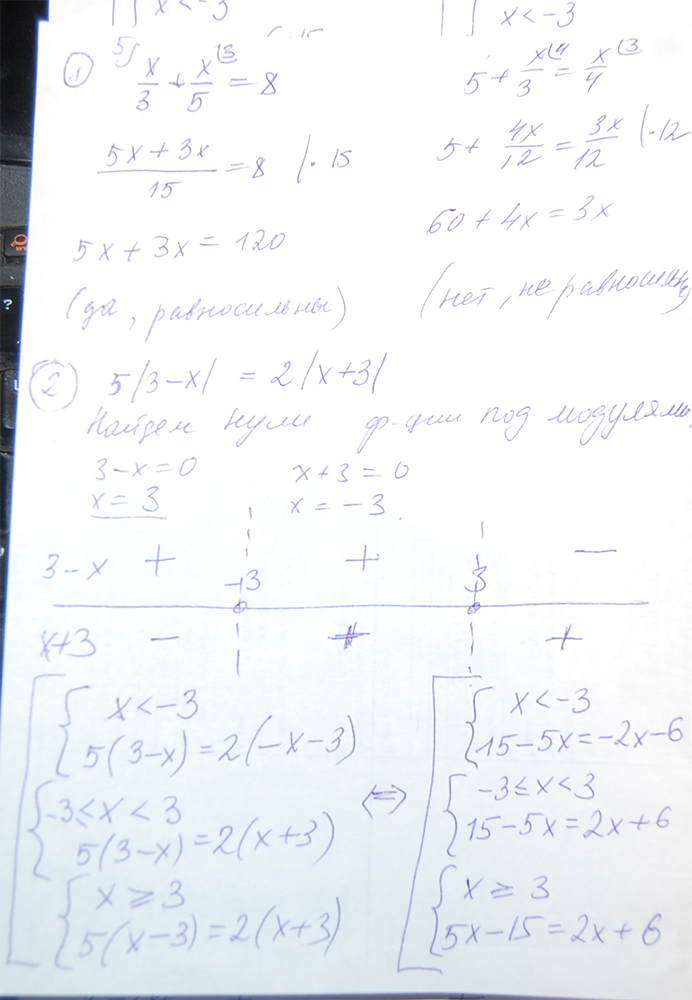 x < -3
x < -3
①
5) x/3 + x/5 (3 = 8
(5x + 3x)/15 = 8 |· 15
5x + 3x = 120
(да, равносильны)
5 + x/3 (4 = x/4 (3
5 + 4x/12 = 3x/12 |· 12
60 + 4x = 3x
(нет, не равносильны)
② 5|3-x| = 2|x+3|
Найдем нули ф-ции под модулями
3-x=0
x = 3
x+3 = 0
x = -3.
3-x + + −
-3 3
x+3 − + +
x < -3
5(3-x) = 2(-x-3)
-3 ≤ x < 3
5(3-x) = 2(x+3)
x ≥ 3
5(x-3) = 2(x+3)
⇔
x < -3
15-5x = -2x-6
-3 ≤ x < 3
15-5x = 2x+6
x ≥ 3
5x-15 = 2x+6